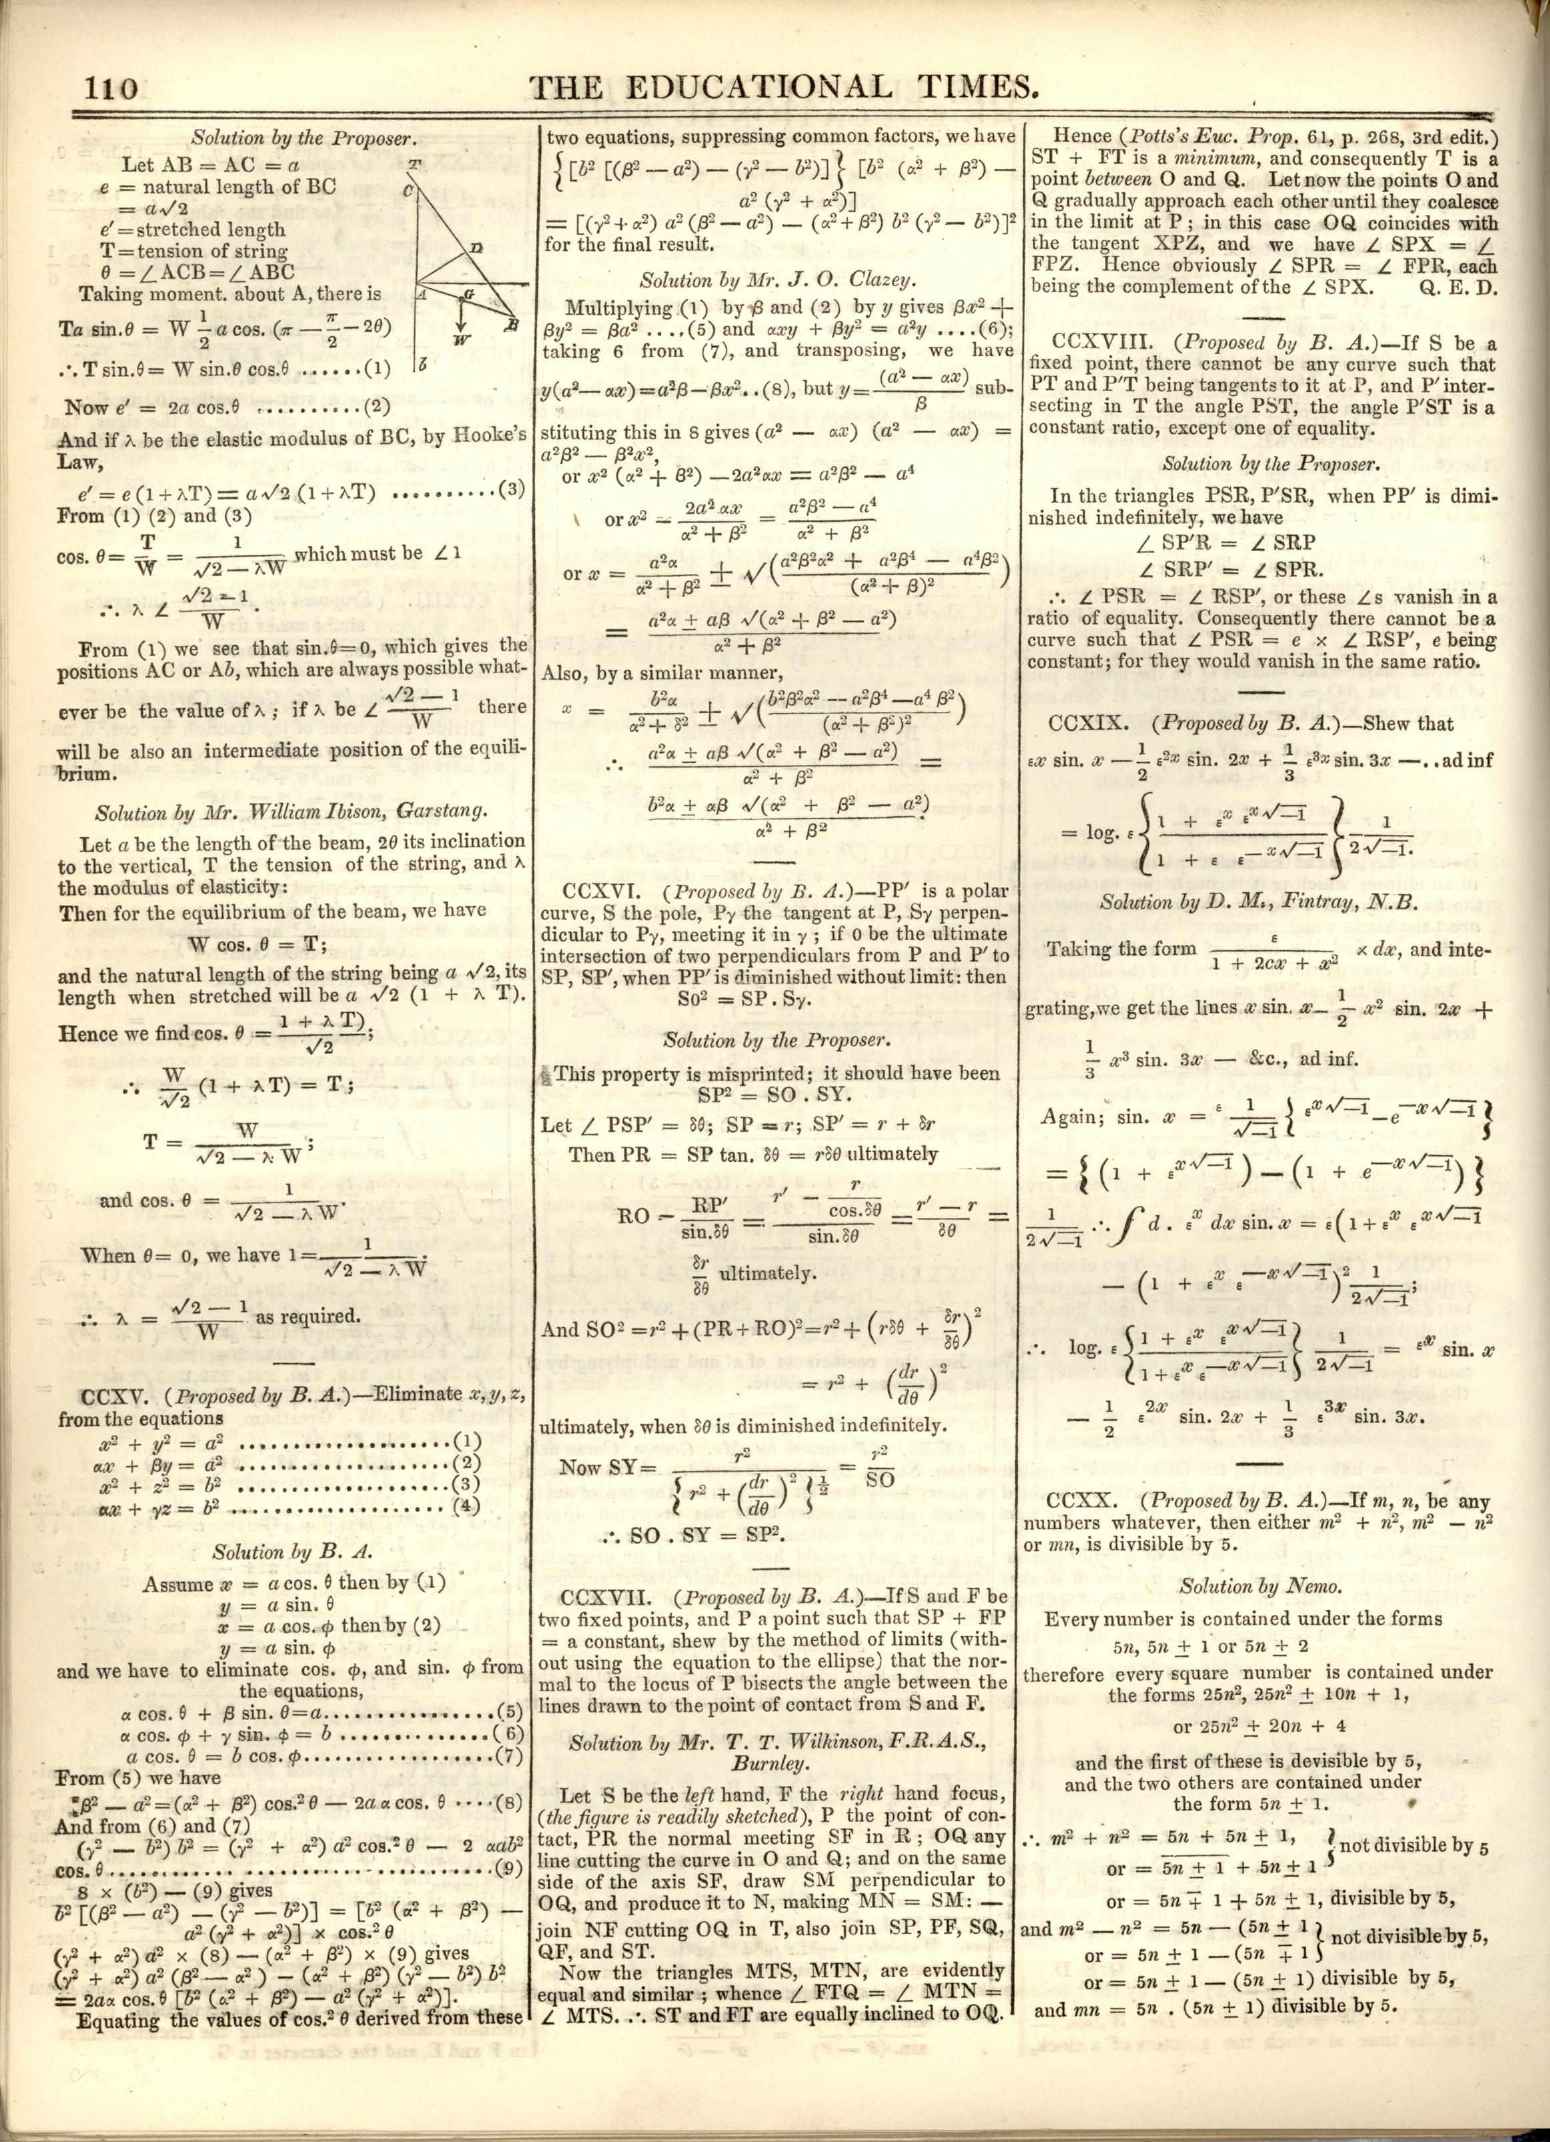 110
THE EDUCATIONAL TIMES.
Solution by the Proposer.
Let AB = AC = a
e = natural length of BC
= a√2
e′ = stretched length
T = tension of string
θ = ∠ ACB = ∠ ABC
Taking moment. about A, there is
Ta sin.θ = W 1/2 a cos. (π — π/2 — 2θ)
∴ T sin.θ = W sin.θ cos.θ ......(1)
Now e′ = 2a cos.θ ..........(2)
And if λ be the elastic modulus of BC, by Hooke's
Law,
e′ = e (1 + λT) = a √2 (1 + λT) ..........(3)
From (1) (2) and (3)
cos. θ = T/W = 1/(√2 — λW) which must be ∠ 1
∴ λ ∠ (√2 — 1)/W.
From (1) we see that sin.θ=0, which gives the
positions AC or Ab, which are always possible what-
ever be the value of λ; if λ be ∠ (√2 — 1)/W there
will be also an intermediate position of the equili-
brium.
Solution by Mr. William Ibison, Garstang.
Let a be the length of the beam, 2θ its inclination
to the vertical, T the tension of the string, and λ
the modulus of elasticity:
Then for the equilibrium of the beam, we have
W cos. θ = T;
and the natural length of the string being a √2, its
length when stretched will be a √2 (1 + λ T).
Hence we find cos. θ = (1 + λ T)/√2;
∴ W/√2 (1 + λT) = T;
T = W/(√2 — λ W);
and cos. θ = 1/(√2 — λ W).
When θ = 0, we have 1 = 1/(√2 — λ W).
∴ λ = (√2 — 1)/W as required.
CCXV. (Proposed by B. A.)—Eliminate x, y, z,
from the equations
x² + y² = a² ....................(1)
αx + βy = a² ....................(2)
x² + z² = b² ....................(3)
αx + γz = b² ....................(4)
Solution by B. A.
Assume x = a cos. θ then by (1)
y = a sin. θ
x = a cos. φ then by (2)
y = a sin. φ
and we have to eliminate cos. φ, and sin. φ from
the equations,
α cos. θ + β sin. θ = a................(5)
α cos. φ + γ sin. φ = b ..............(6)
a cos. θ = b cos. φ..................(7)
From (5) we have
β² — a² = (α² + β²) cos.² θ — 2a α cos. θ ....(8)
And from (6) and (7)
(γ² — b²) b² = (γ² + α²) a² cos.² θ — 2 αab²
cos. θ........................................(9)
8 × (b²) — (9) gives
b² [(β² — a²) — (γ² — b²)] = [b² (α² + β²) —
a² (γ² + α²)] × cos.² θ
(γ² + α²) a² × (8) — (α² + β²) × (9) gives
(γ² + α²) a² (β² — α²) — (α² + β²) (γ² — b²) b²
= 2aα cos. θ [b² (α² + β²) — a² (γ² + α²)].
Equating the values of cos.² θ derived from these
T
C
D
A
G
B
W
b
two equations, suppressing common factors, we have
{[b² [(β² — a²) — (γ² — b²)]} [b² (α² + β²) —
a² (γ² + α²)]
= [(γ² + α²) a² (β² — a²) — (α² + β²) b² (γ² — b²)]²
for the final result.
Solution by Mr. J. O. Clazey.
Multiplying (1) by β and (2) by y gives βx² +
βy² = βa² ....(5) and αxy + βy² = a²y ....(6);
taking 6 from (7), and transposing, we have
y(a² — αx) = a²β — βx²..(8), but y = (a² — αx)/β sub-
stituting this in 8 gives (a² — αx) (a² — αx) =
a²β² — β²x²,
or x² (α² + β²) — 2a²αx = a²β² — a⁴
or x² — 2a² αx/(α² + β²) = (a²β² — a⁴)/(α² + β²)
or x = a²α/(α² + β²) ± √((a²β²α² + a²β⁴ — a⁴β²)/(α² + β)²)
= (a²α ± aβ √(α² + β² — a²))/(α² + β²)
Also, by a similar manner,
x = b²α/(α² + β²) ± √((b²β²α² — a²β⁴ — a⁴ β²)/(α² + β²)²)
∴ (a²α ± aβ √(α² + β² — a²))/(α² + β²) =
(b²α ± αβ √(α² + β² — a²))/(α² + β²).
CCXVI. (Proposed by B. A.)—PP′ is a polar
curve, S the pole, Pγ the tangent at P, Sγ perpen-
dicular to Pγ, meeting it in γ; if 0 be the ultimate
intersection of two perpendiculars from P and P′ to
SP, SP′, when PP′ is diminished without limit: then
So² = SP . Sγ.
Solution by the Proposer.
This property is misprinted; it should have been
SP² = SO . SY.
Let ∠ PSP′ = δθ; SP = r; SP′ = r + δr
Then PR = SP tan. δθ = rδθ ultimately
RO = RP′/sin.δθ = (r′ — r/cos.δθ)/sin.δθ = (r′ — r)/δθ =
δr/δθ ultimately.
And SO² = r² + (PR + RO)² = r² + (rδθ + δr/δθ)²
= r² + (dr/dθ)²
ultimately, when δθ is diminished indefinitely.
Now SY = r²/{r² + (dr/dθ)²}^½ = r²/SO
∴ SO . SY = SP².
CCXVII. (Proposed by B. A.)—If S and F be
two fixed points, and P a point such that SP + FP
= a constant, shew by the method of limits (with-
out using the equation to the ellipse) that the nor-
mal to the locus of P bisects the angle between the
lines drawn to the point of contact from S and F.
Solution by Mr. T. T. Wilkinson, F.R.A.S.,
Burnley.
Let S be the left hand, F the right hand focus,
(the figure is readily sketched), P the point of con-
tact, PR the normal meeting SF in R; OQ any
line cutting the curve in O and Q; and on the same
side of the axis SF, draw SM perpendicular to
OQ, and produce it to N, making MN = SM: —
join NF cutting OQ in T, also join SP, PF, SQ,
QF, and ST.
Now the triangles MTS, MTN, are evidently
equal and similar; whence ∠ FTQ = ∠ MTN =
∠ MTS. ∴ ST and FT are equally inclined to OQ.
Hence (Potts's Euc. Prop. 61, p. 268, 3rd edit.)
ST + FT is a minimum, and consequently T is a
point between O and Q. Let now the points O and
Q gradually approach each other until they coalesce
in the limit at P; in this case OQ coincides with
the tangent XPZ, and we have ∠ SPX = ∠
FPZ. Hence obviously ∠ SPR = ∠ FPR, each
being the complement of the ∠ SPX. Q. E. D.
CCXVIII. (Proposed by B. A.)—If S be a
fixed point, there cannot be any curve such that
PT and P′T being tangents to it at P, and P′ inter-
secting in T the angle PST, the angle P′ST is a
constant ratio, except one of equality.
Solution by the Proposer.
In the triangles PSR, P′SR, when PP′ is dimi-
nished indefinitely, we have
∠ SP′R = ∠ SRP
∠ SRP′ = ∠ SPR.
∴ ∠ PSR = ∠ RSP′, or these ∠s vanish in a
ratio of equality. Consequently there cannot be a
curve such that ∠ PSR = e × ∠ RSP′, e being
constant; for they would vanish in the same ratio.
CCXIX. (Proposed by B. A.)—Shew that
εx sin. x — 1/2 ε²ˣ sin. 2x + 1/3 ε³ˣ sin. 3x —..ad inf
= log. ε {(1 + εˣ ε^(x√—1))/(1 + ε ε^(—x√—1))} 1/(2√—1).
Solution by D. M., Fintray, N.B.
Taking the form ε/(1 + 2cx + x²) × dx, and inte-
grating, we get the lines x sin. x — 1/2 x² sin. 2x +
1/3 x³ sin. 3x — &c., ad inf.
Again; sin. x = ε 1/√—1 {ε^(x√—1) — e^(—x√—1)}
= {(1 + ε^(x√—1)) — (1 + e^(—x√—1))}
1/(2√—1) ∴ ∫ d . εˣ dx sin. x = ε(1 + εˣ ε^(x√—1)
— (1 + εˣ ε^(—x√—1))² 1/(2√—1);
∴ log. ε {(1 + εˣ ε^(x√—1))/(1 + εˣ ε^(—x√—1))} 1/(2√—1) = εˣ sin. x
— 1/2 ε²ˣ sin. 2x + 1/3 ε³ˣ sin. 3x.
CCXX. (Proposed by B. A.)—If m, n, be any
numbers whatever, then either m² + n², m² — n²
or mn, is divisible by 5.
Solution by Nemo.
Every number is contained under the forms
5n, 5n ± 1 or 5n ± 2
therefore every square number is contained under
the forms 25n², 25n² ± 10n + 1,
or 25n² ± 20n + 4
and the first of these is devisible by 5,
and the two others are contained under
the form 5n ± 1.
∴ m² + n² = 5n + 5n ± 1, } not divisible by 5
or = 5n ± 1 + 5n ± 1
or = 5n ∓ 1 + 5n ± 1, divisible by 5,
and m² — n² = 5n — (5n ± 1 } not divisible by 5,
or = 5n ± 1 — (5n ∓ 1
or = 5n ± 1 — (5n ± 1) divisible by 5,
and mn = 5n . (5n ± 1) divisible by 5.